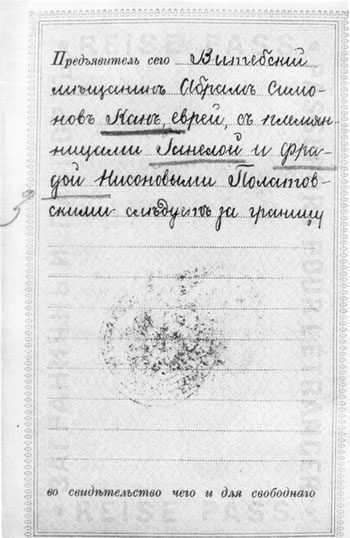 REISE PASS
Предъявитель сего Витебский
мѣщанинъ Абрамъ Симо-
новъ Канъ, еврей, съ племян-
ницами Ганелой и Фра-
дой Нисоновыми Полатов-
скими слѣдуетъ за границу
во свидѣтельство чего и для свободнаго
REISE PASS